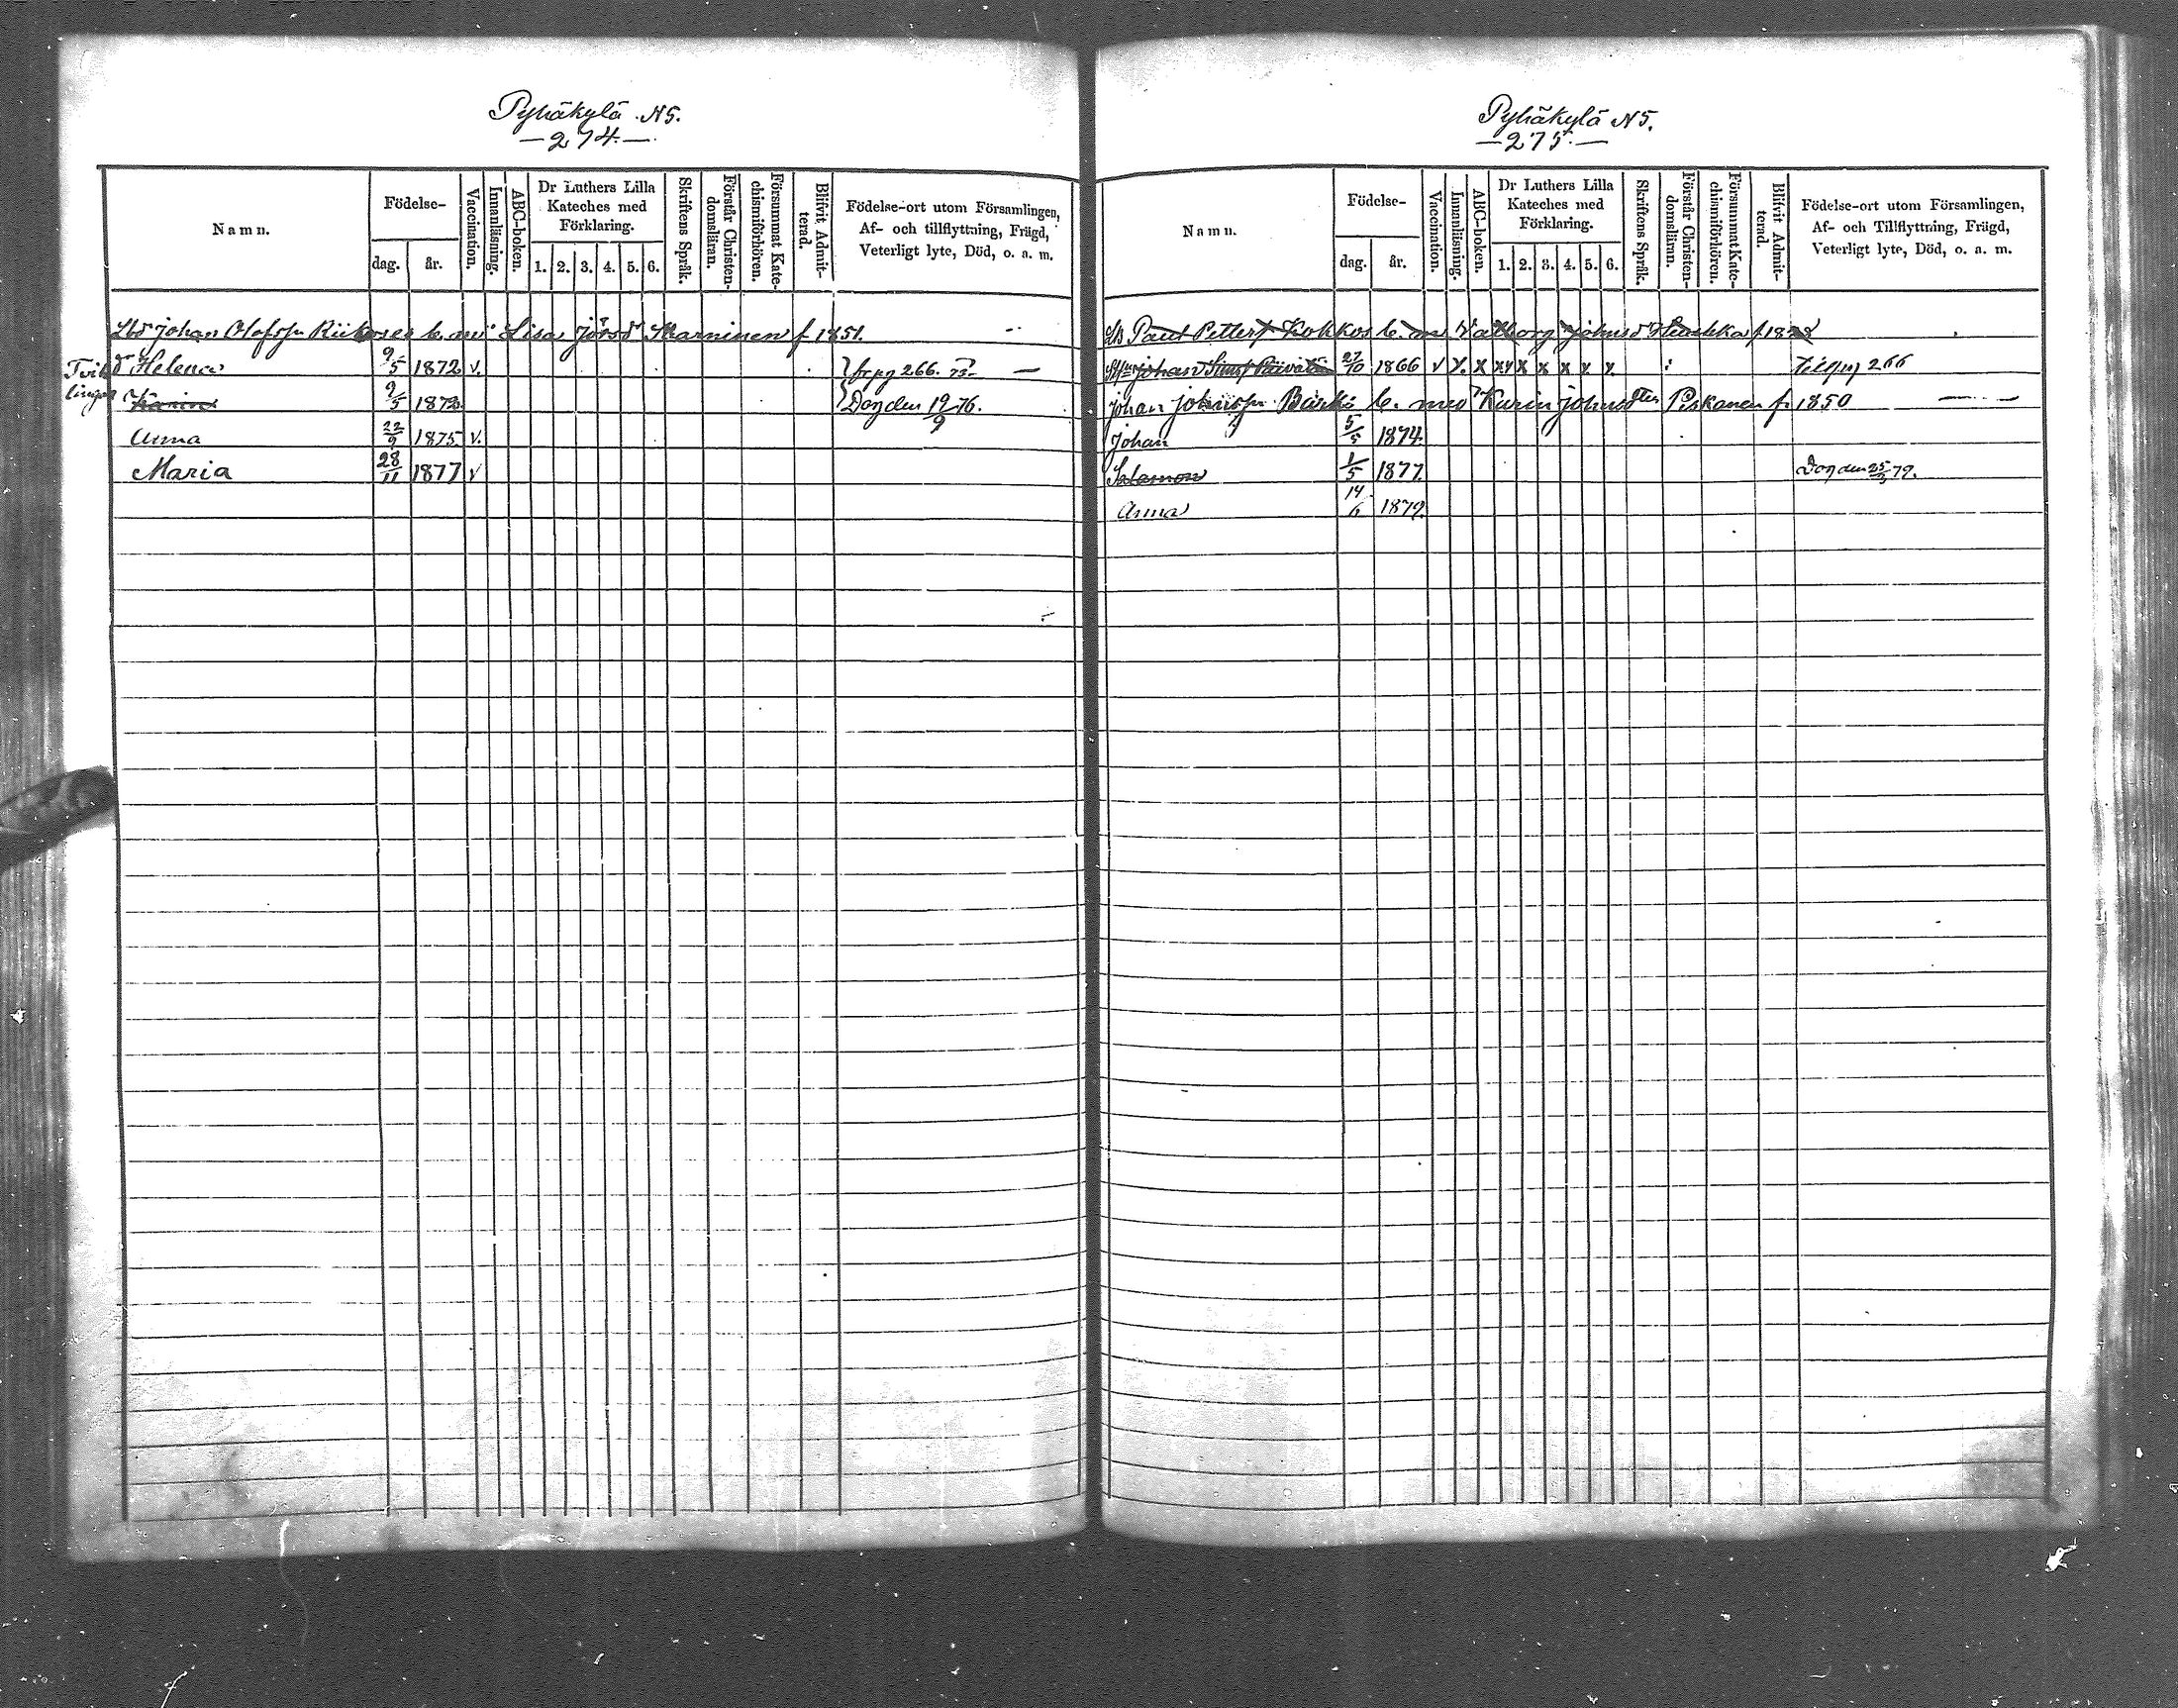 Pyhäkylä N5.
—274.—
Namn.
Födelse-
dag.
år.
Vaccination.
Innanläsning.
ABC-boken.
Dr Luthers Lilla
Kateches med
Förklaring.
1. 2. 3. 4. 5. 6.
Skriftens Språk.
Förstår Christen-
domsläran.
Försummat Kate-
chismiförhören.
Blifvit Admit-
terad.
Födelse-ort utom Församlingen,
Af- och tillflyttning, Frägd,
Veterligt lyte, Död, o. a. m.
Johan Olofss. b. m. Lisa f 1851.
Helena 9/5 1872 v. fr pg 266.
Karin 9/5 1872 Död den 19/9 76.
Anna 22/9 1875 v.
Maria 28/11 1877 v
Pyhäkylä N5.
—275.—
Namn.
Födelse-
dag.
år.
Vaccination.
Innanläsning.
ABC-boken.
Dr Luthers Lilla
Kateches med
Förklaring.
1. 2. 3. 4. 5. 6.
Skriftens Språk.
Förstår Christen-
domsläran.
Försummat Kate-
chismiförhören.
Blifvit Admit-
terad.
Födelse-ort utom Församlingen,
Af- och Tillflyttning, Frägd,
Veterligt lyte, Död, o. a. m.
Paul Petterss. Kokkos b. m. Valborg Johansd
Johan 27/10 1866 v x. x xv x x x v v. till pg 266
Johan Johanss. b. med Karin Piskanen f. 1850
Johan 5/5 1874.
Salamon 1/5 1877. Död den 79.
Anna 14/6 1879.